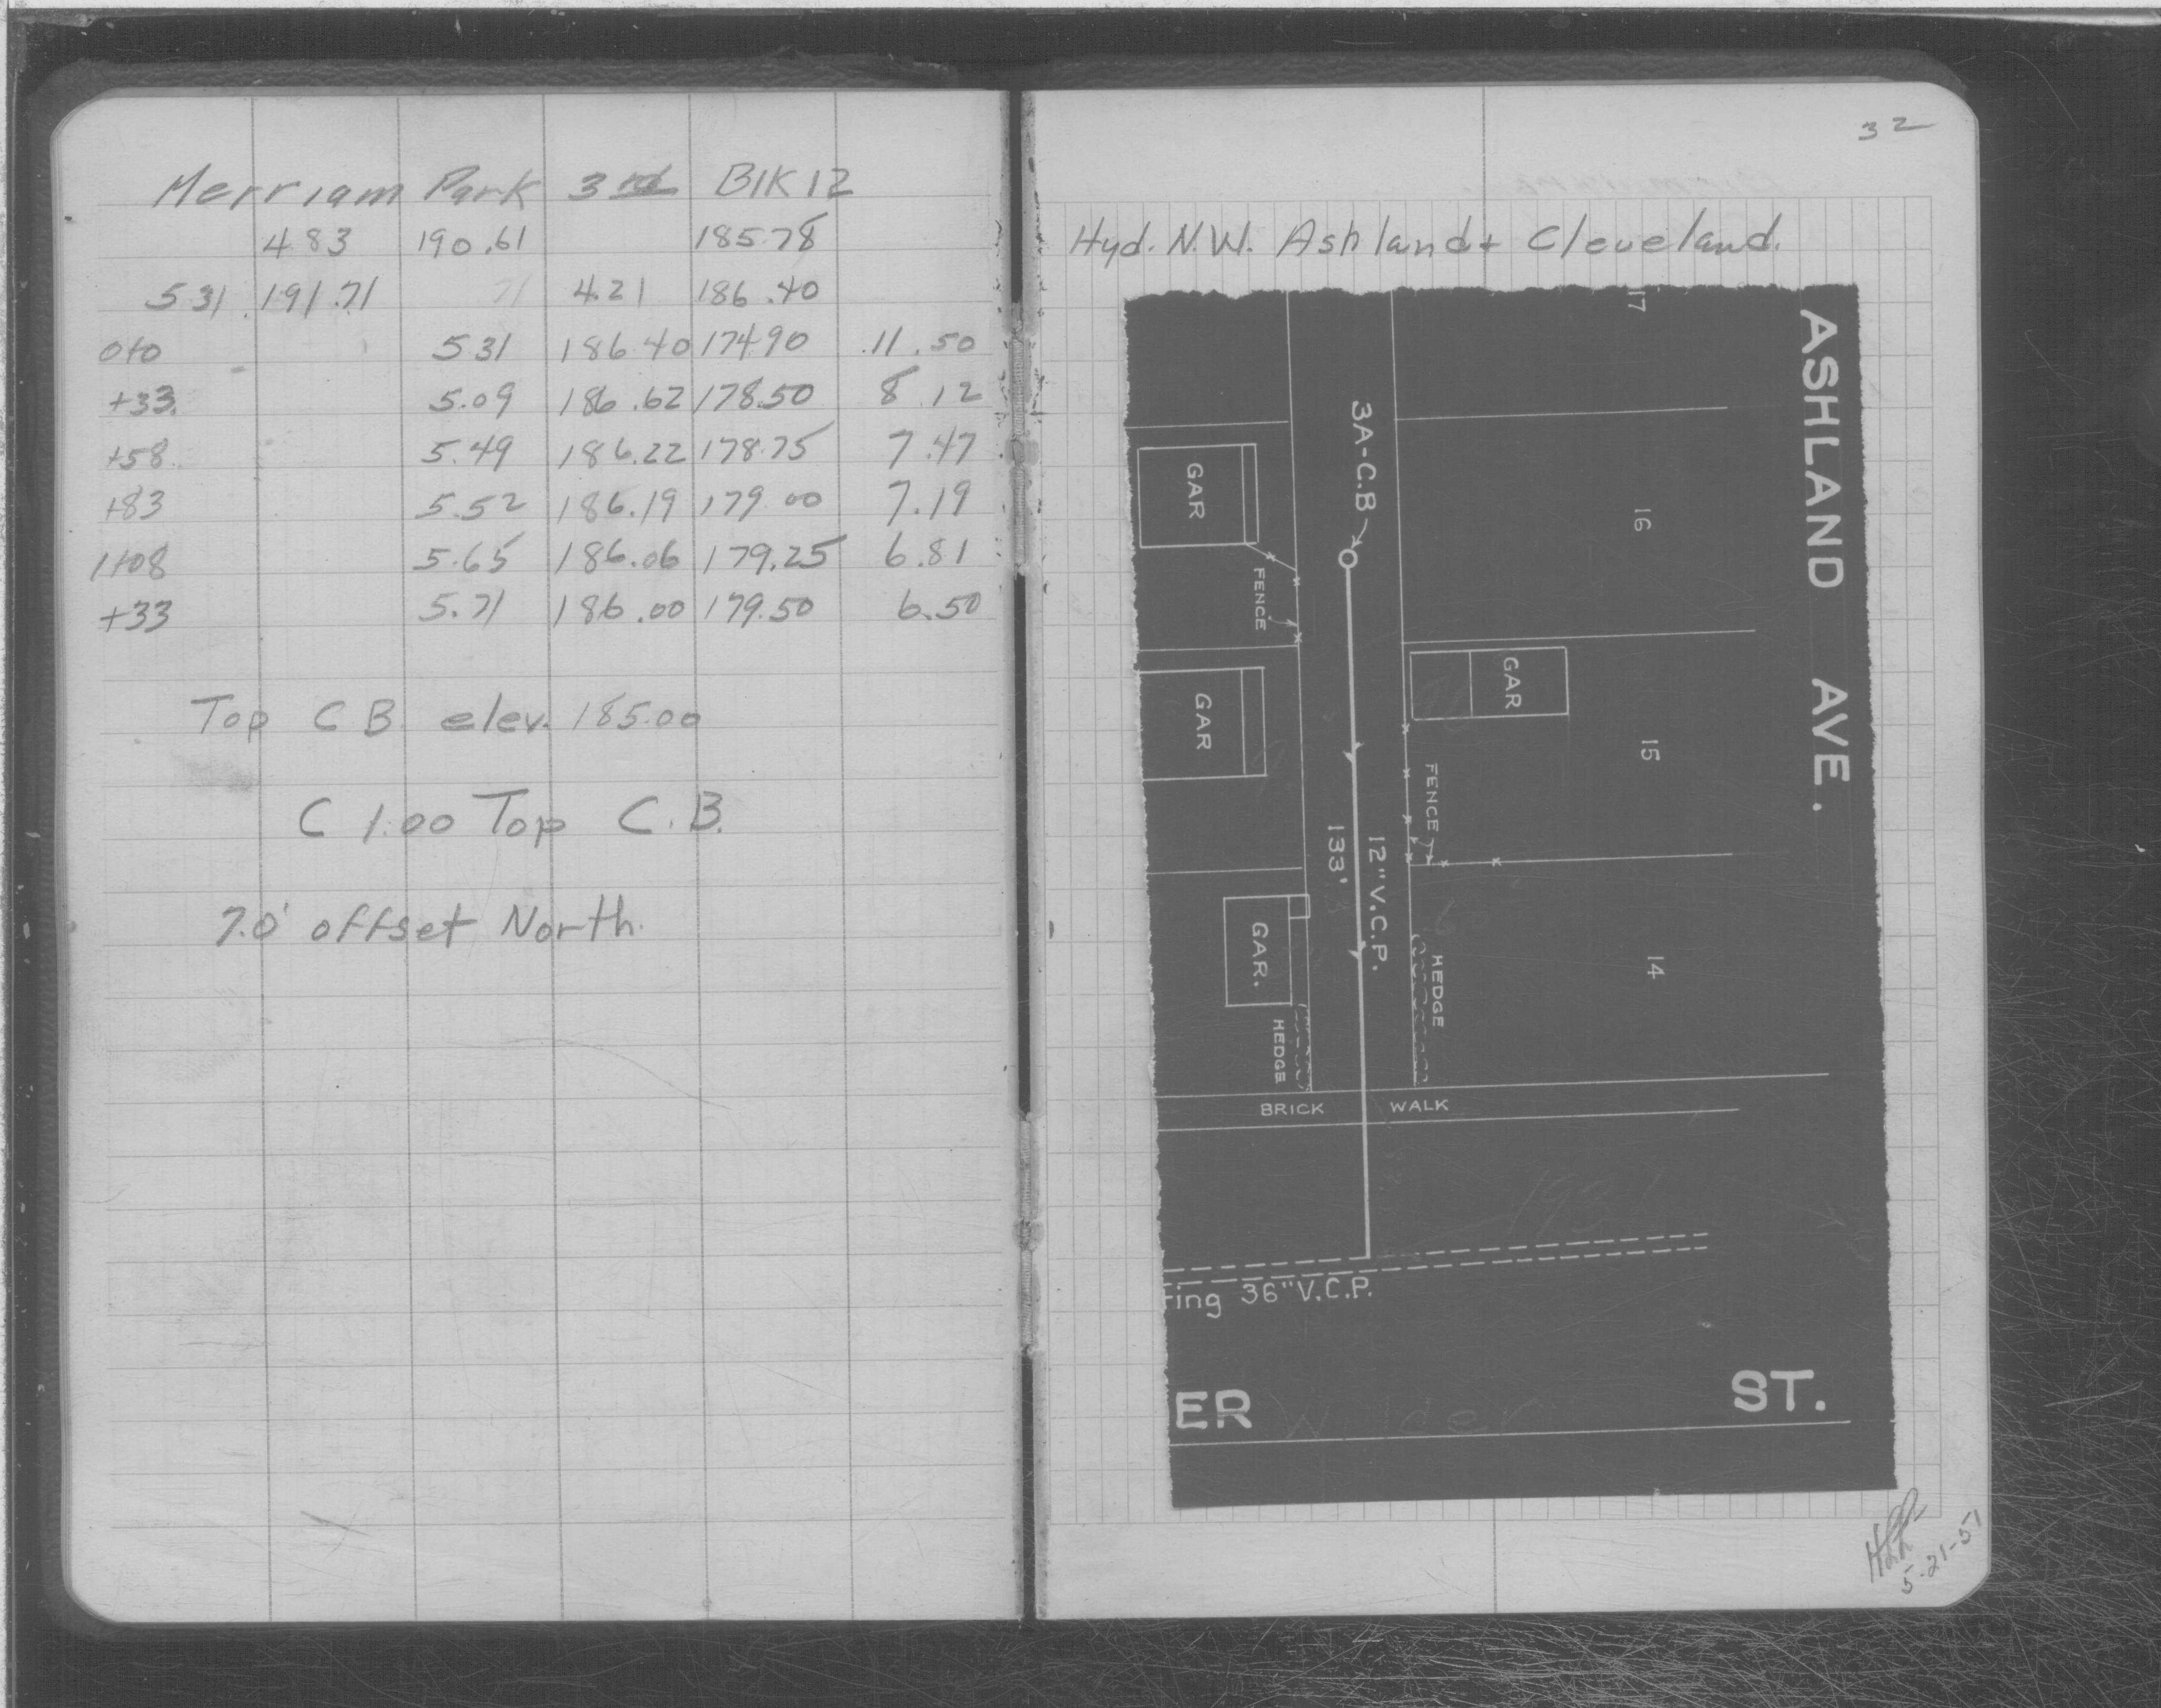 Merriam Park 3rd Blk 12
4.83 190.61 185.78
5.31 191.71 71 4.21 186.40
0+0 5.31 186.40 174.90 11.50
+33 5.09 186.62 178.50 8.12
+58 5.49 186.22 178.75 7.47
+83 5.52 186.19 179.00 7.19
1+08 5.65 186.06 179.25 6.81
+33 5.71 186.00 179.50 6.50
Top C B. elev. 185.00
C 1.00 Top C.B.
7.0' offset North.
32
Hyd. N.W. Ashland + Cleveland.
ASHLAND AVE.
17
16
15
14
3A-C.B
GAR
FENCE
GAR
GAR
FENCE
12" V.C.P.
133'
GAR.
HEDGE
HEDGE
BRICK WALK
ring 36" V.C.P.
ER Wilder ST.
5-21-51